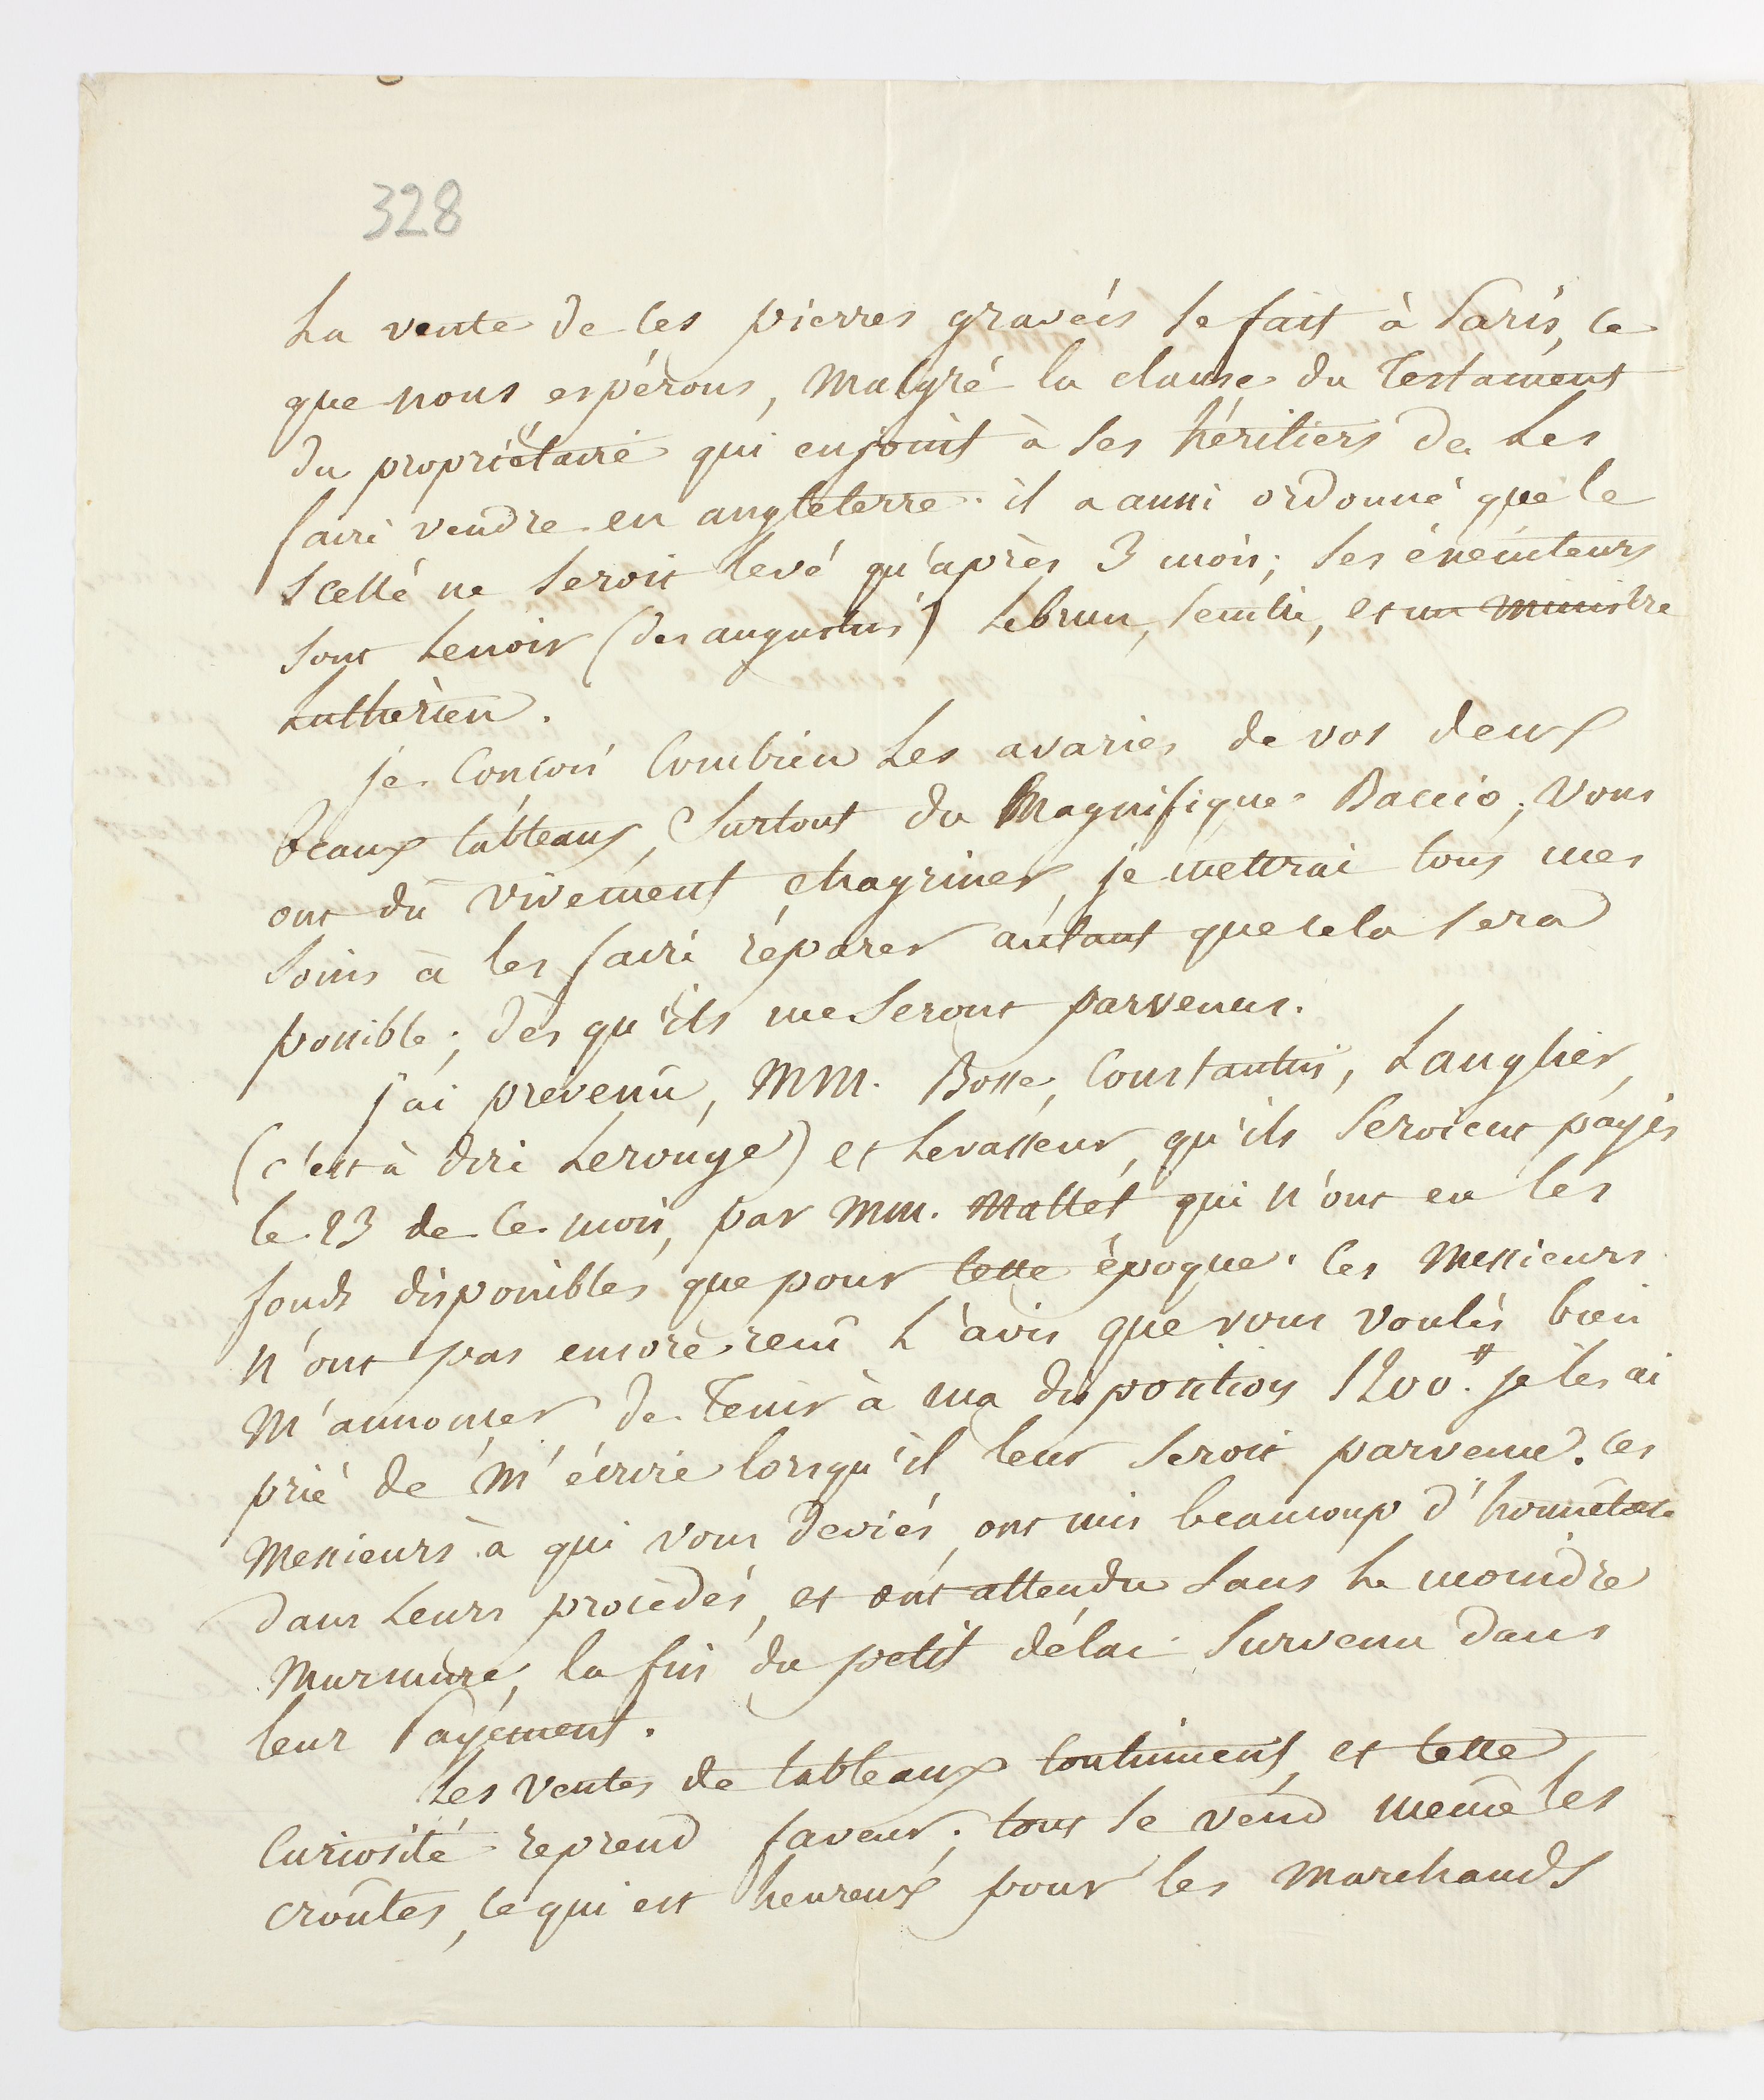 328
La vente de ces pierres gravéés se fait à Paris, ce
que nous espérons, Malgré la clause du Testament
du propriétaire qui enjoint à ses héritiers de Les
faire vendre en angleterre. il a aussi ordonné que le
scellé ne seroit levé qu'après 3 mois; ses éxécuteurs
sont Lenoir (des augustins) Lebrun, et un Ministre
Luthérien.
je Conçois Combien Les avaries de vos deux
beaux tableaux, Surtout du Magnifique Baccio, vous
ont dû vivement chagriner, je mettrai tous mes
soins à les faire réparer autant que cela sera
possible; dès qu'ils me Seront parvenus.
j'ai prévenû, MM. Bosse, Constantin, Langlier,
(c'est à dire Lerouge) et Levasseur, qu'ils Seroient payés
le 23 de ce mois, par MM. Mallet qui n'ont eu les
fonds disponibles que pour cette époque. Ces Messieurs
n'ont pas encore reçû L'avis que vous voulés bien
M'annoncer de Tenir à ma disposition 1200.# je les ai
prié de M'écrire lorsqu'il leur Seroit parvenu. Ces
Messieurs à qui vous deviés, ont mis beaucoup d'honnêteté
dans Leurs procédés, et ont attendu Sans Le moindre
Murmure, la fin du petit délai Survenu dans
leur Payement.
Les ventes de tableaux Continuent, et cette
Curiosité reprend faveur; tout se vend même les
croûtes, ce qui est heureux pour les Marchands